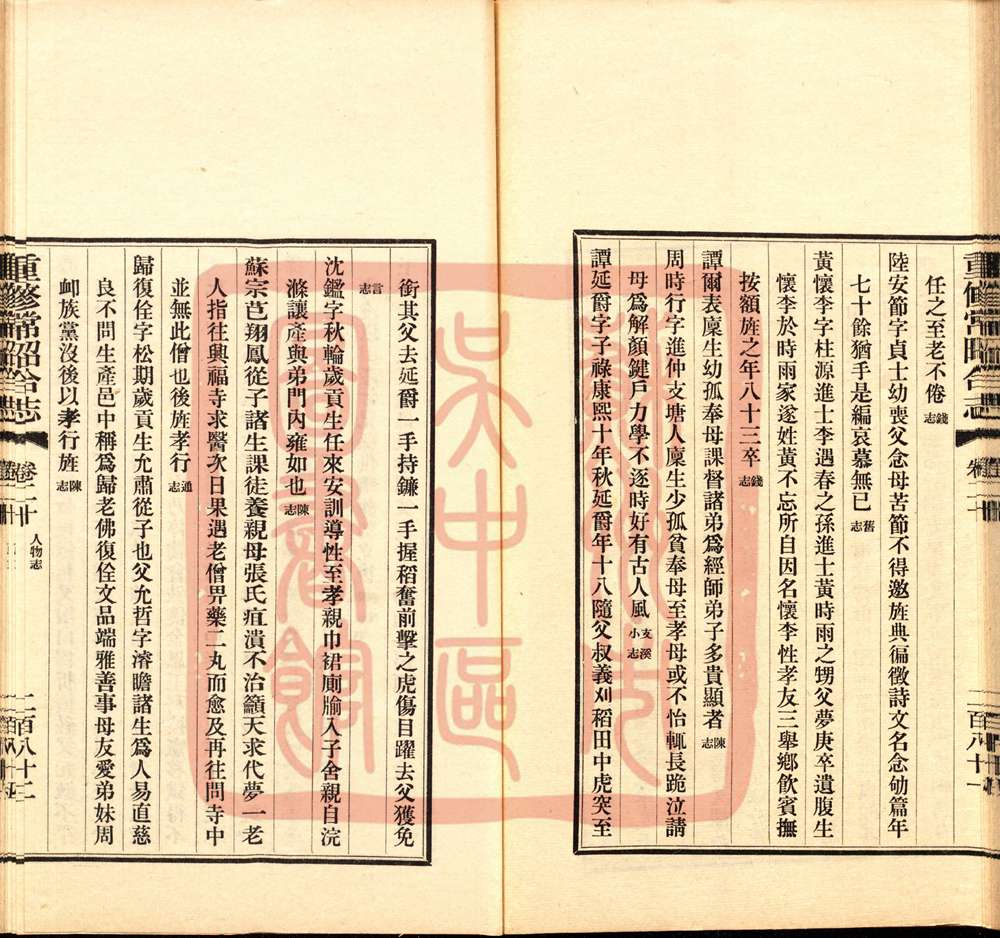 任之至老不倦錢志
陸安節字貞士幼喪父念母苦節不得邀旌典徧徵詩文名念劬篇年
七十餘猶手是編哀慕無已舊志
黃懷李字柱源進士李遇春之孫進士黃時雨之甥父夢庚卒遺腹生
懷李於時雨家遂姓黃不忘所自因名懷李性孝友三舉鄉飲賓撫
按額旌之年八十三卒錢志
譚爾表廩生幼孤奉母課督諸弟爲經師弟子多貴顯者陳志
周時行字進仲支塘人廩生少孤貧奉母至孝母或不怡輒長跪泣請
母爲解顏鍵戶力學不逐時好有古人風支溪小志
譚延爵字子祿康熙十年秋延爵年十八隨父叔義刈稻田中虎突至
銜其父去延爵一手持鐮一手握稻奮前擊之虎傷目躍去父獲免
言志
沈鑑字秋輪歲貢生任來安訓導性至孝親巾裙廁牏入子舍親自浣
滌讓產與弟門內雍如也陳志
蘇宗芑翔鳳從子諸生課徒養親母張氏疽潰不治籲天求代夢一老
人指往興福寺求醫次日果遇老僧畀藥二丸而愈及再往問寺中
並無此僧也後旌孝行通志
歸復佺字松期歲貢生允肅從子也父允哲字濬瞻諸生爲人易直慈
良不問生產邑中稱爲歸老佛復佺文品端雅善事母友愛弟妹周
卹族黨沒後以孝行旌陳志
重修常昭合志
卷二十
人物志
二百八十二